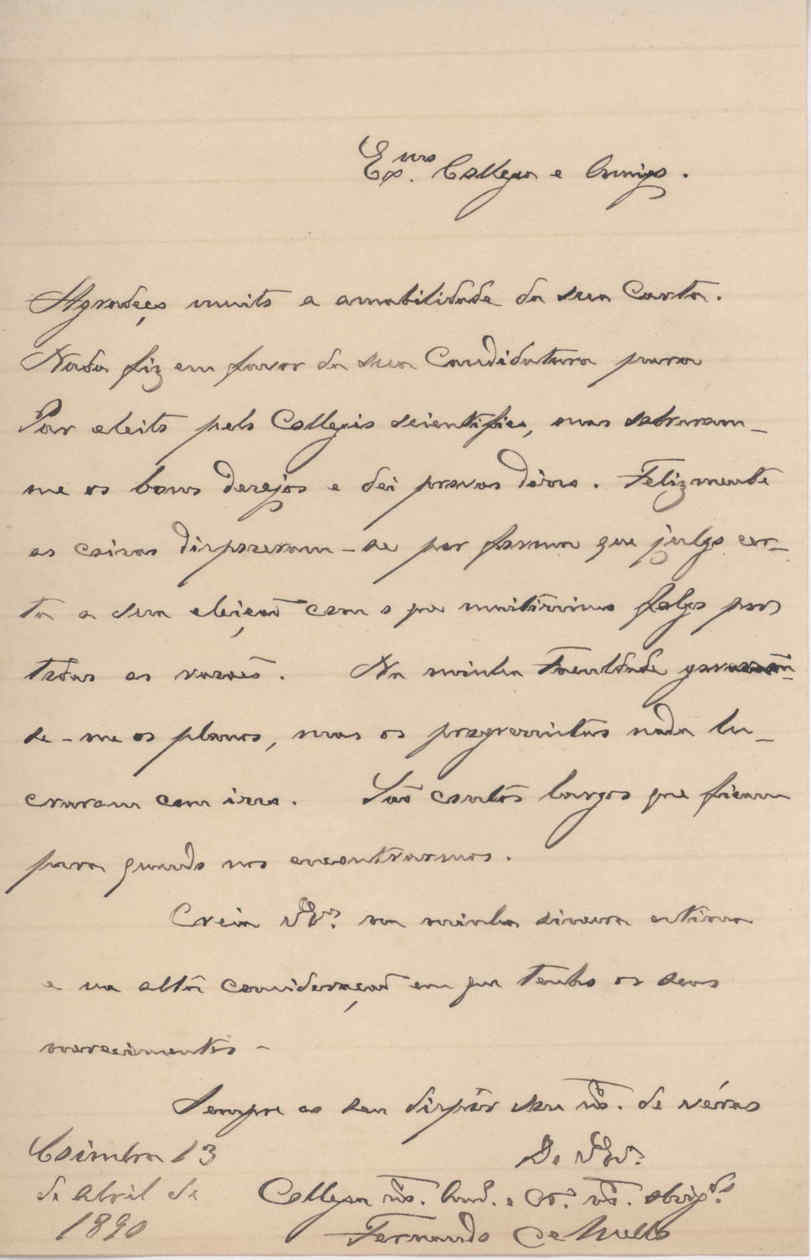 Ex.mo Collega e Amigo.
Agradeço muito a amabilidade da sua Carta.
Nada fiz em favor da sua Candidatura para
Par eleito pelo Collegio scientifico, mas sobraram-
me os bons desejos e dei provas d'isso. Felizmente
as coisas dispozeram-se por forma que julgo cer-
ta a sua eleição com o que muitissimo folgo por
todas as rasões. Na minha Faculdade
se-me os planos, mas os progressistas nada lu-
craram com isso. São contos largos que ficam
para quando nos encontrarmos.
Creia V. Ex.ª na minha sincera estima
e na alta consideração em que tenho os seus
merecimentos -
Sempre ao seu dispôr sou m.to de véras
Coimbra 13
De V. Ex.ª
de Abril de
Collega m.to Am.º e Cr.º m.to obrig.do
1890
Fernando de Mello